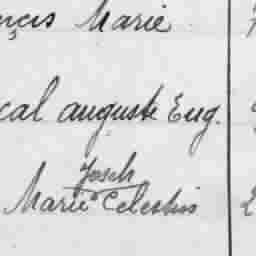 nçis Marie
cal auguste Eug.
Josch
Marie Celestin
2